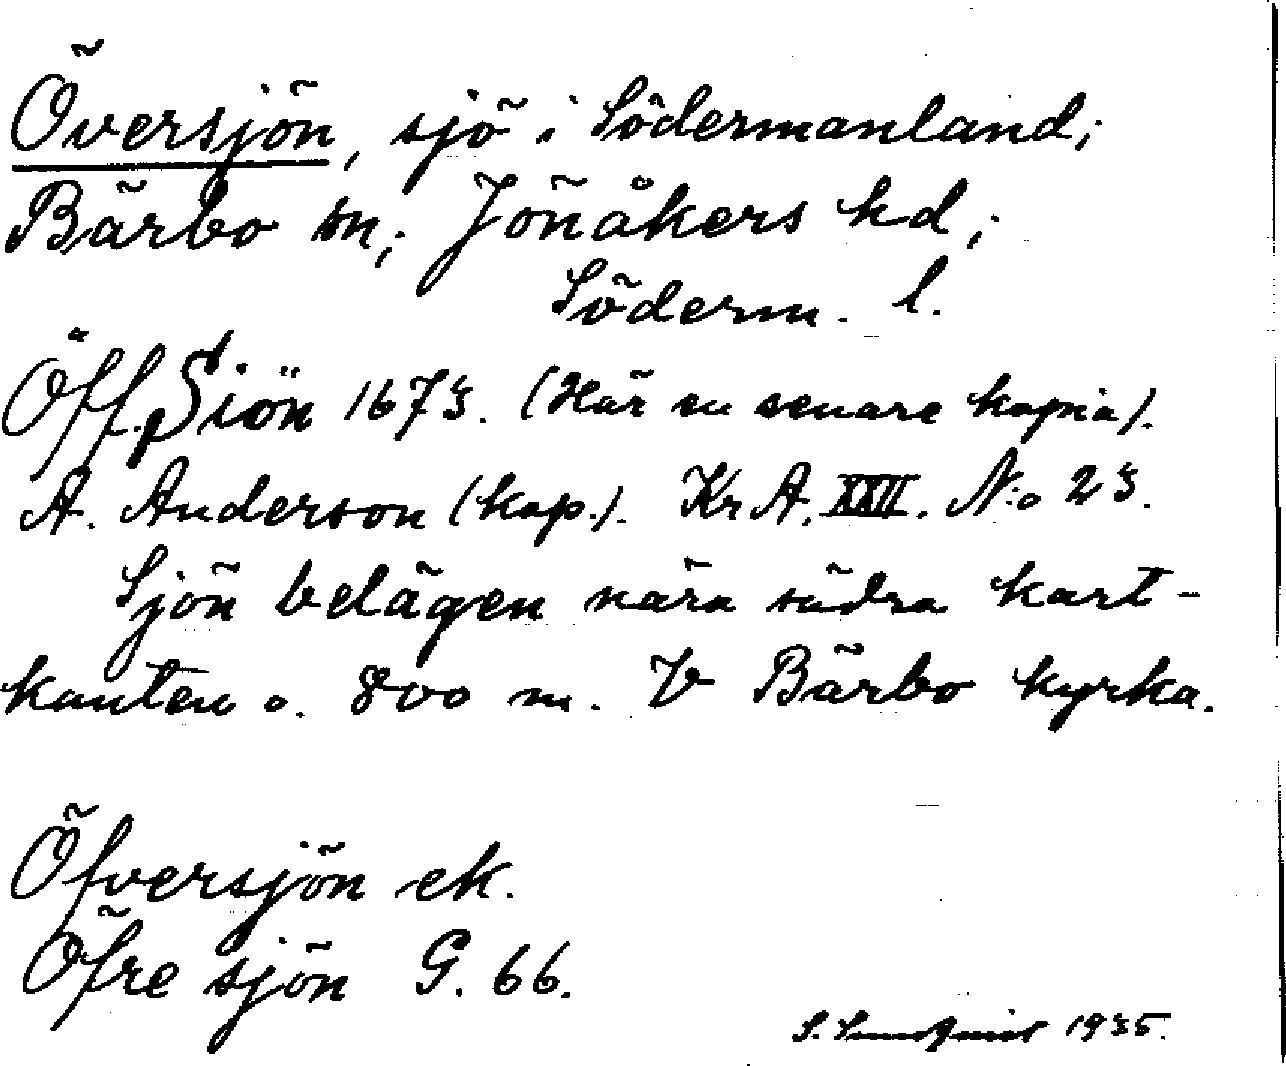 Översjön, sjö i Södermanland;
Bärbo sn; Jönåkers hd;
Söderm. l.
Öff. Siön 1673. (Här en senare kopia).
A. Anderson (kop.). Kr A. XXII. N:o 23.
Sjön belägen nära södra kart-
kanten o. 800 m. V Bärbo kyrka.
Öfversjön ek.
Öfre sjön G. 66.
S. Sundqvist 1935.